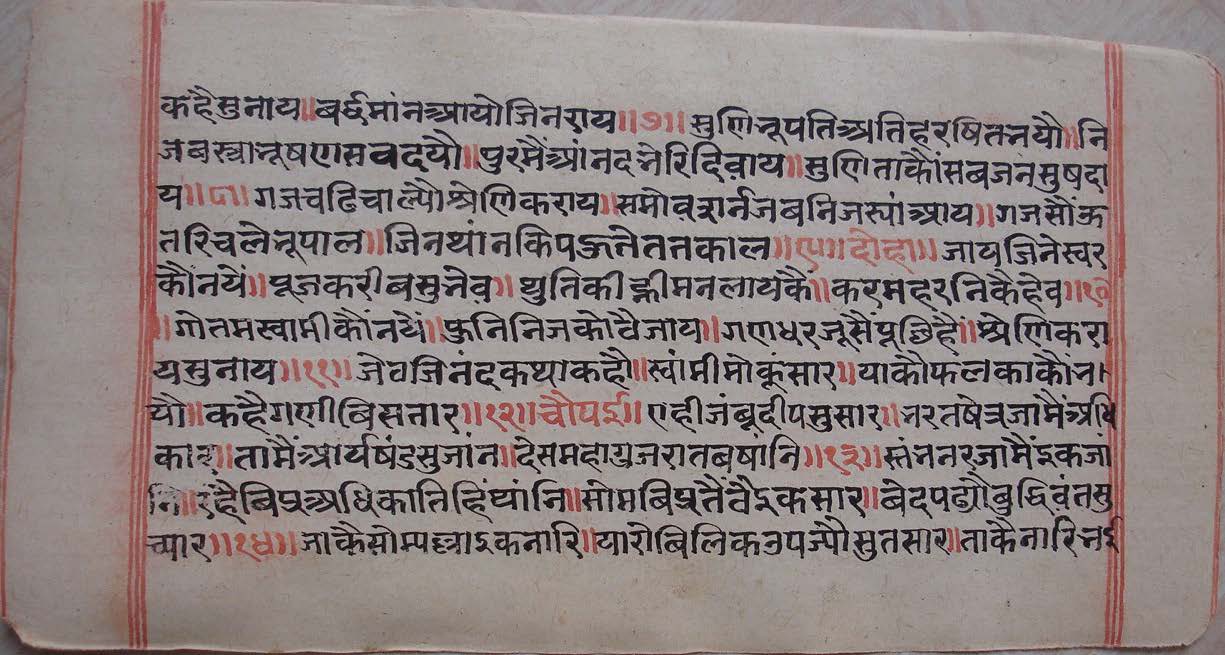 कहैसुनाय॥बर्द्धमांनआयोजिनराय॥७॥सुणिभूपतिअतिहरषितभयौ॥नि
जबस्त्राभूषणसबदयौ॥पुरमैंआंनदभेरिदिवाय॥सुणिताकौंसबजनसुषदा
य॥८॥गजचढिचाल्यौश्रेणिकराय॥समोवसर्नजबनिजस्यांआय॥गजसौंऊ
तरिचलेभूपाल॥जिनथांनकिपऊतेततकाल॥९॥दोहा॥जायजिनेस्वर
कौंनयें॥पूजकरीबसुभेव॥थुतिकीह्नीमनलायकैं॥करमहरनिकैहेव॥१०
॥गोतमस्वामीकौंनयें॥फुनिनिजकोठैजाय॥गणधरजूसैंपूछिहैं॥श्रेणिकरा
यसुनाय॥११॥जेठजिनंदकथाकहौ॥स्वांमीमोकूंसार॥याकौफलकाकौंभ
यौ॥कहैगणीबिसतार॥१२॥चौपई॥एहीजंबूदीपसुसार॥भरतषेत्रजामैंअधि
कार॥तामैंआर्यषंडसुजांन॥देसमहागुजरातबषांनि॥१३॥स्तंभनरजामैंइकजां
नि॥रहैबिप्रअधिकातिहिंथांनि॥सोमबिप्रतैंवैइकसार॥बेदपढ्यौबुद्धिवंतसु
च्यार॥१४॥जाकैसोम्पल्लाइकनारि॥यारोबिलिकउपज्यौसुतसार॥ताकैनारिभई